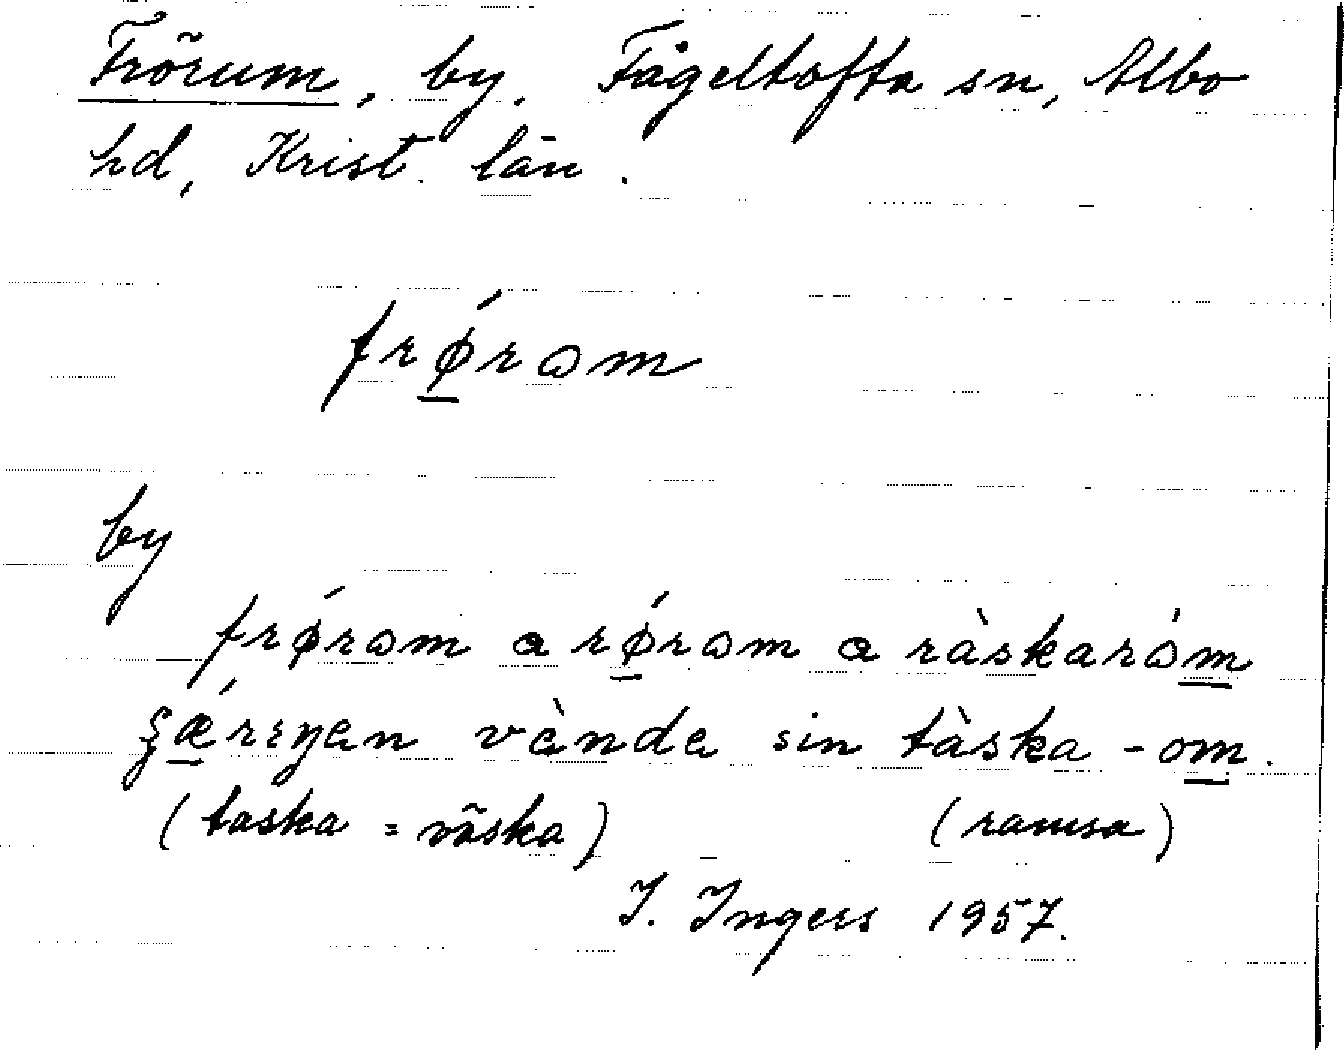 Frörum, by. Fågeltofta sn, Albo
hd, Krist. län.
frǿ̱rωm
by
frǿrωm a rǿ̱rωm a ràskarώm̱
ʒǽ̱rrŋen vènde sin tàska -om̱.
(taska = väska) (ramsa)
I. Ingers 1957.